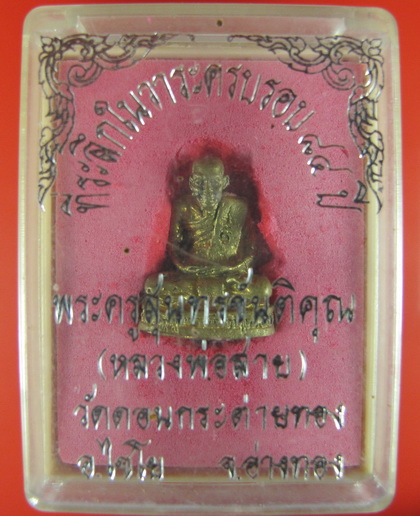 ที่ระลึกในวาระครบรอบ ๘๘ ปี
พระครูสุนทรจันติคุณ
(หลวงพ่อสาย)
วัดดอนกระต่ายทอง
อ.ไชโย จ.อ่างทอง